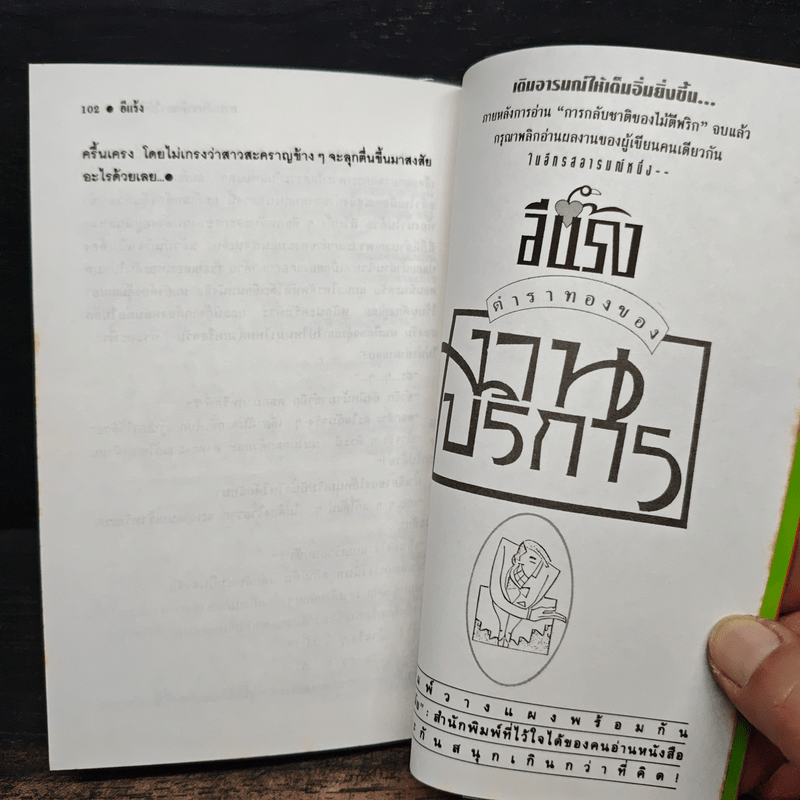 102 ● อีแร้ง
ครื้นเครง โดยไม่เกรงว่าสาวสะคราญข้าง ๆ จะลุกตื่นขึ้นมาสงสัย
อะไรด้วยเลย...●
เติมอารมณ์ให้เต็มอิ่มยิ่งขึ้น...
ภายหลังการอ่าน "การกลับชาติของไม้ตีพริก" จบแล้ว
กรุณาพลิกอ่านผลงานของผู้เขียนคนเดียวกัน
ในอีกรสอารมณ์หนึ่ง--
อีแร้ง
ตำราทองของ
งาน
บริการ
พ์วางแผงพร้อมกัน
: สำนักพิมพ์ที่ไว้ใจได้ของคนอ่านหนังสือ
กันสนุกเกินกว่าที่คิด!